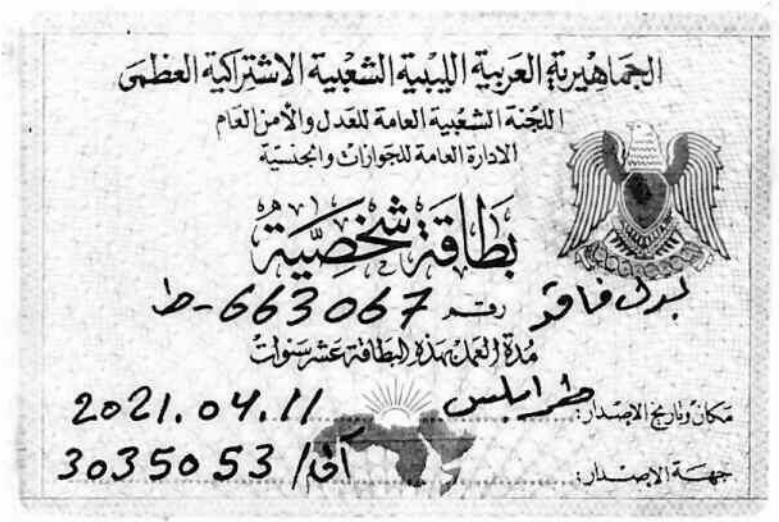 الجماهيرية العربية الليبية الشعبية الاشتراكية العظمى
اللجنة الشعبية العامة للعدل والأمن العام
الادارة العامة للجوازات والجنسية
بطاقة شخصية
بدل فاقد رقم 663067-ط
مدة العمل بهذه البطاقة عشر سنوات
مكان وتاريخ الاصدار: طرابلس 2021.04.11
جهة الاصدار: 3035053